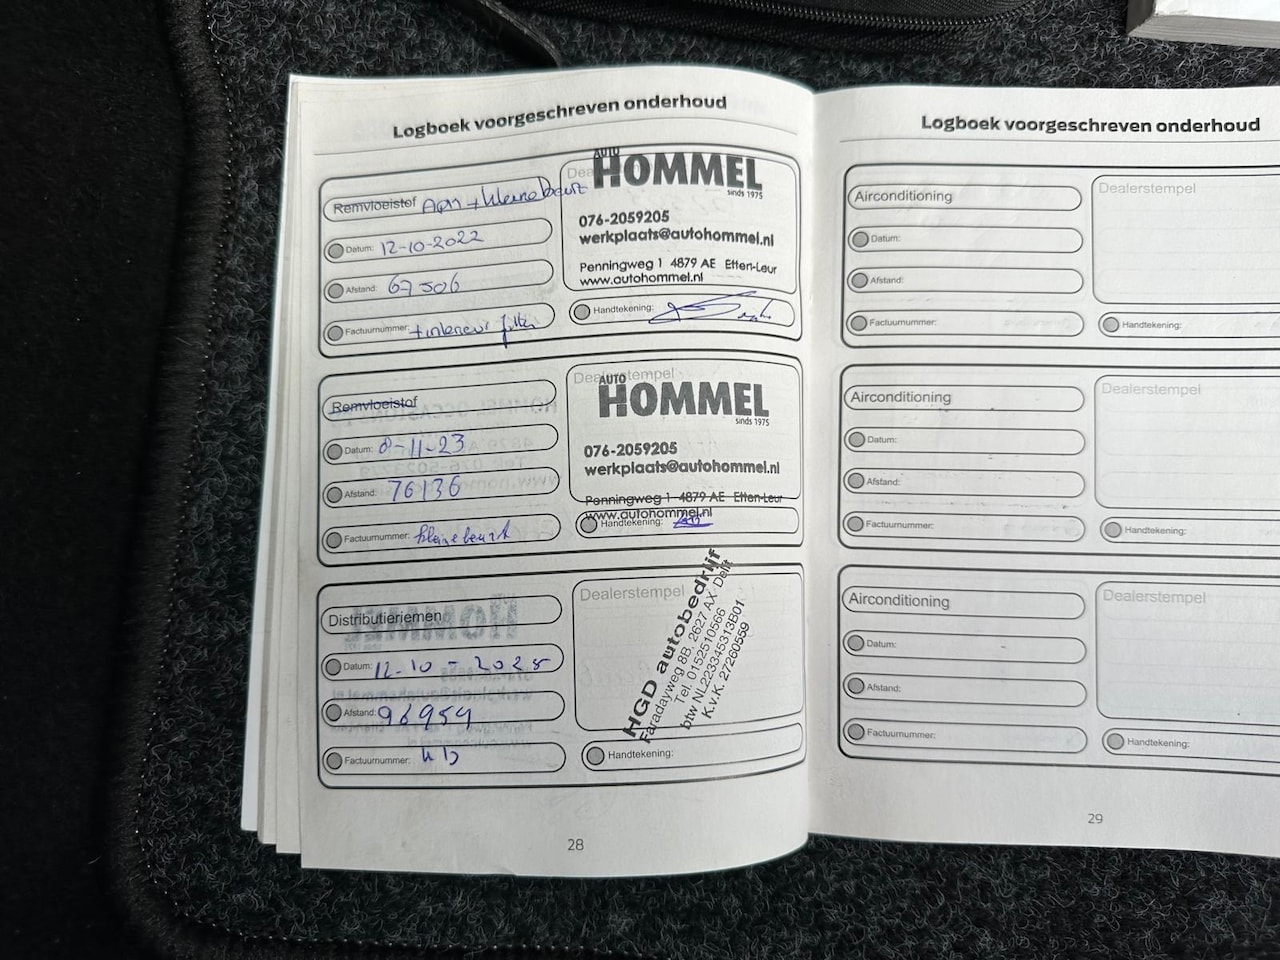 Logboek voorgeschreven onderhoud
Remvloeistof APK + kleine beurt
Datum: 12-10-2022
Afstand: 67506
Factuurnummer: + interieur filter
Dea
AUTO
HOMMEL
sinds 1975
076-2059205
werkplaats@autohommel.nl
Penningweg 1 4879 AE Etten-Leur
www.autohommel.nl
Handtekening:
Remvloeistof
Datum: 8-11-23
Afstand: 76136
Factuurnummer: kleine beurt
Dealerstempel
AUTO
HOMMEL
sinds 1975
076-2059205
werkplaats@autohommel.nl
Penningweg 1 4879 AE Etten-Leur
www.autohommel.nl
Handtekening:
Distributieriemen
Datum: 12-10-2025
Afstand: 96959
Factuurnummer:
Dealerstempel
HGD autobedrijf
Faradayweg 8B, 2627 AX Delft
Tel. 0152510566
btw NL223345313B01
K.v.K. 27260559
Handtekening:
28
Logboek voorgeschreven onderhoud
Airconditioning
Datum:
Afstand:
Factuurnummer:
Dealerstempel
Handtekening:
Airconditioning
Datum:
Afstand:
Factuurnummer:
Dealerstempel
Handtekening:
Airconditioning
Datum:
Afstand:
Factuurnummer:
Dealerstempel
Handtekening:
29